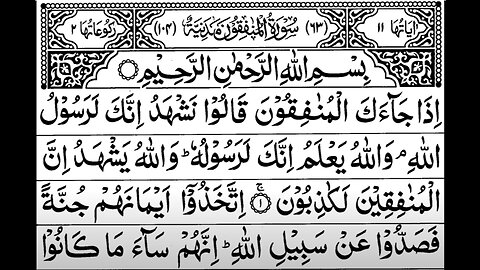 اٰيَاتُهَا ١١ (٦٣) سُوْرَةُ الْمُنٰفِقُوْنَ مَدَنِيَّةٌ (١٠٤) رُكُوْعَاتُهَا ٢
بِسْمِ اللّٰهِ الرَّحْمٰنِ الرَّحِيْمِ
اِذَا جَآءَكَ الْمُنٰفِقُوْنَ قَالُوْا نَشْهَدُ اِنَّكَ لَرَسُوْلُ
اللّٰهِ ۘ وَاللّٰهُ يَعْلَمُ اِنَّكَ لَرَسُوْلُهٗ ؕ وَاللّٰهُ يَشْهَدُ اِنَّ
الْمُنٰفِقِيْنَ لَكٰذِبُوْنَ ۚ ﴿١﴾ اِتَّخَذُوْۤا اَيْمَانَهُمْ جُنَّةً
فَصَدُّوْا عَنْ سَبِيْلِ اللّٰهِ ؕ اِنَّهُمْ سَآءَ مَا كَانُوْا